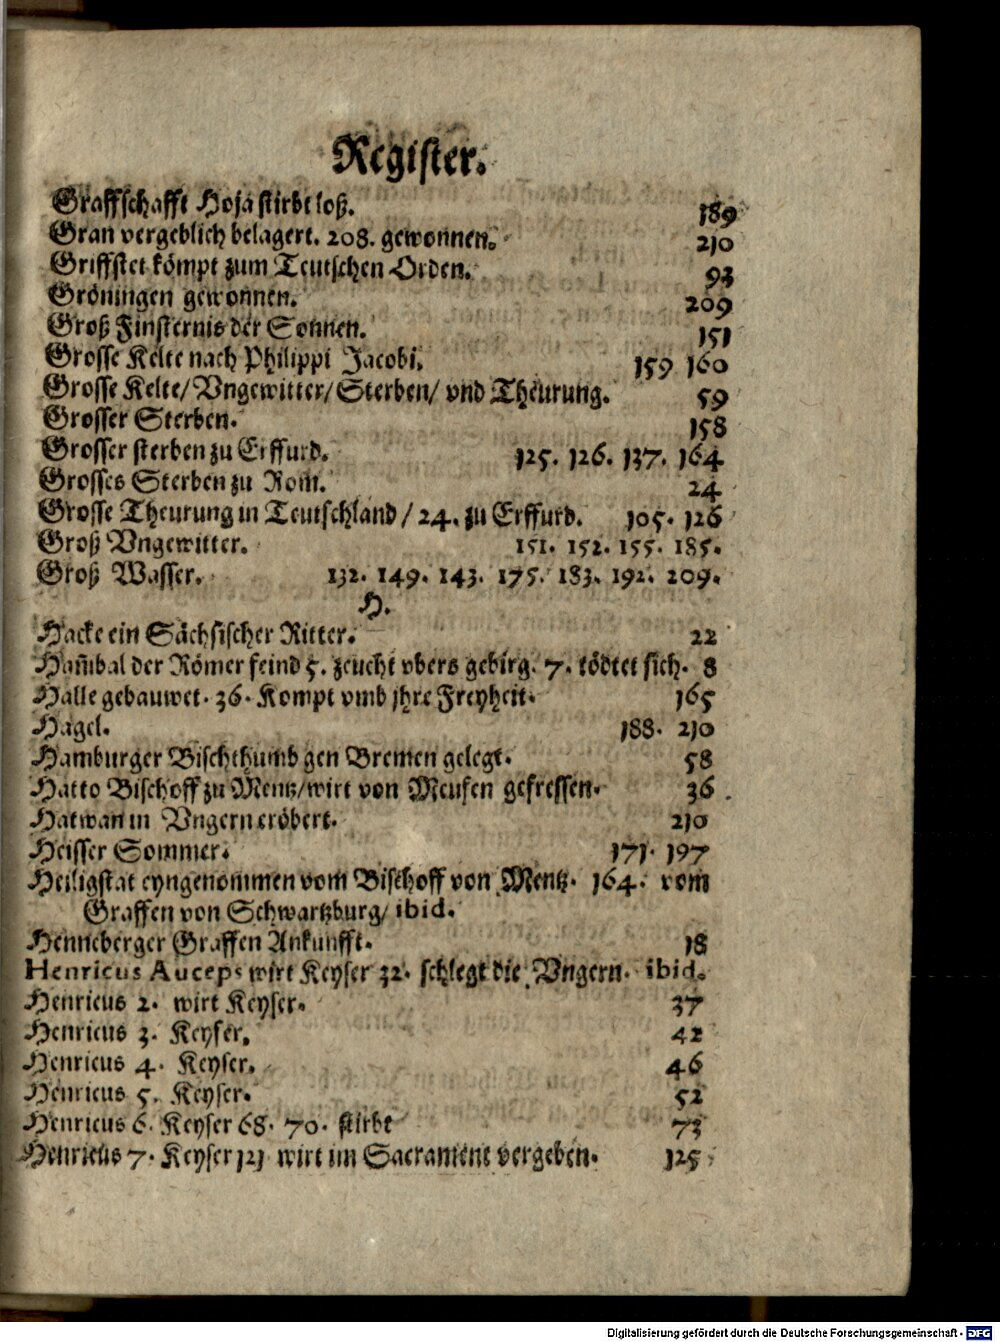 Register.
Graffschafft Hoja stirbt loß. 189
Gran vergeblich belagert. 208. gewonnen. 210
Griffstet kömpt zum Teutschen Orden. 93
Gröningen gewonnen. 209
Groß Finsternis der Sonnen. 151
Grosse Kelte nach Philippi Jacobi. 159 160
Grosse Kelte/ Vngewitter/ Sterben/ vnd Theurung. 59
Grosser Sterben. 158
Grosser sterben zu Erffurd. 125. 126. 137. 164
Grosses Sterben zu Rom. 24
Grosse Theurung in Teutschland / 24. zu Erffurd. 105. 126
Groß Vngewitter. 151. 152. 155. 185.
Groß Wasser. 132. 149. 143. 175. 183. 192. 209.
H.
Hacke ein Sächsischer Ritter. 22
Han̄ibal der Römer feind 5. zeucht vbers gebirg. 7. tödtet sich. 8
Halle gebauwet. 36. Kompt vmb jhre Freyheit. 165
Hagel. 188. 210
Hamburger Bischthumb gen Bremen gelegt. 58
Hatto Bischoff zu Mentz/ wirt von Meusen gefressen. 36.
Hatwan in Vngern eröbert. 210
Heisser Sommer. 171. 197
Heiligstat eyngenommen vom Bischoff von Mentz. 164. vom
Graffen von Schwartzburg/ ibid.
Henneberger Graffen Ankunfft. 18
Henricus Auceps wirt Keyser 32. schlegt die Vngern. ibid.
Henricus 2. wirt Keyser. 37
Henricus 3. Keyser. 42
Henricus 4. Keyser. 46
Henricus 5. Keyser. 52
Henricus 6. Keyser 68. 70. stirbt 73
Henricus 7. Keyser 121 wirt im Sacrament vergeben. 125
Digitalisierung gefördert durch die Deutsche Forschungsgemeinschaft - DFG